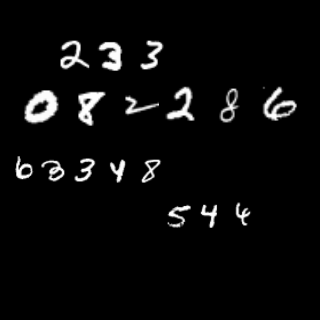 233
082286
63348
544